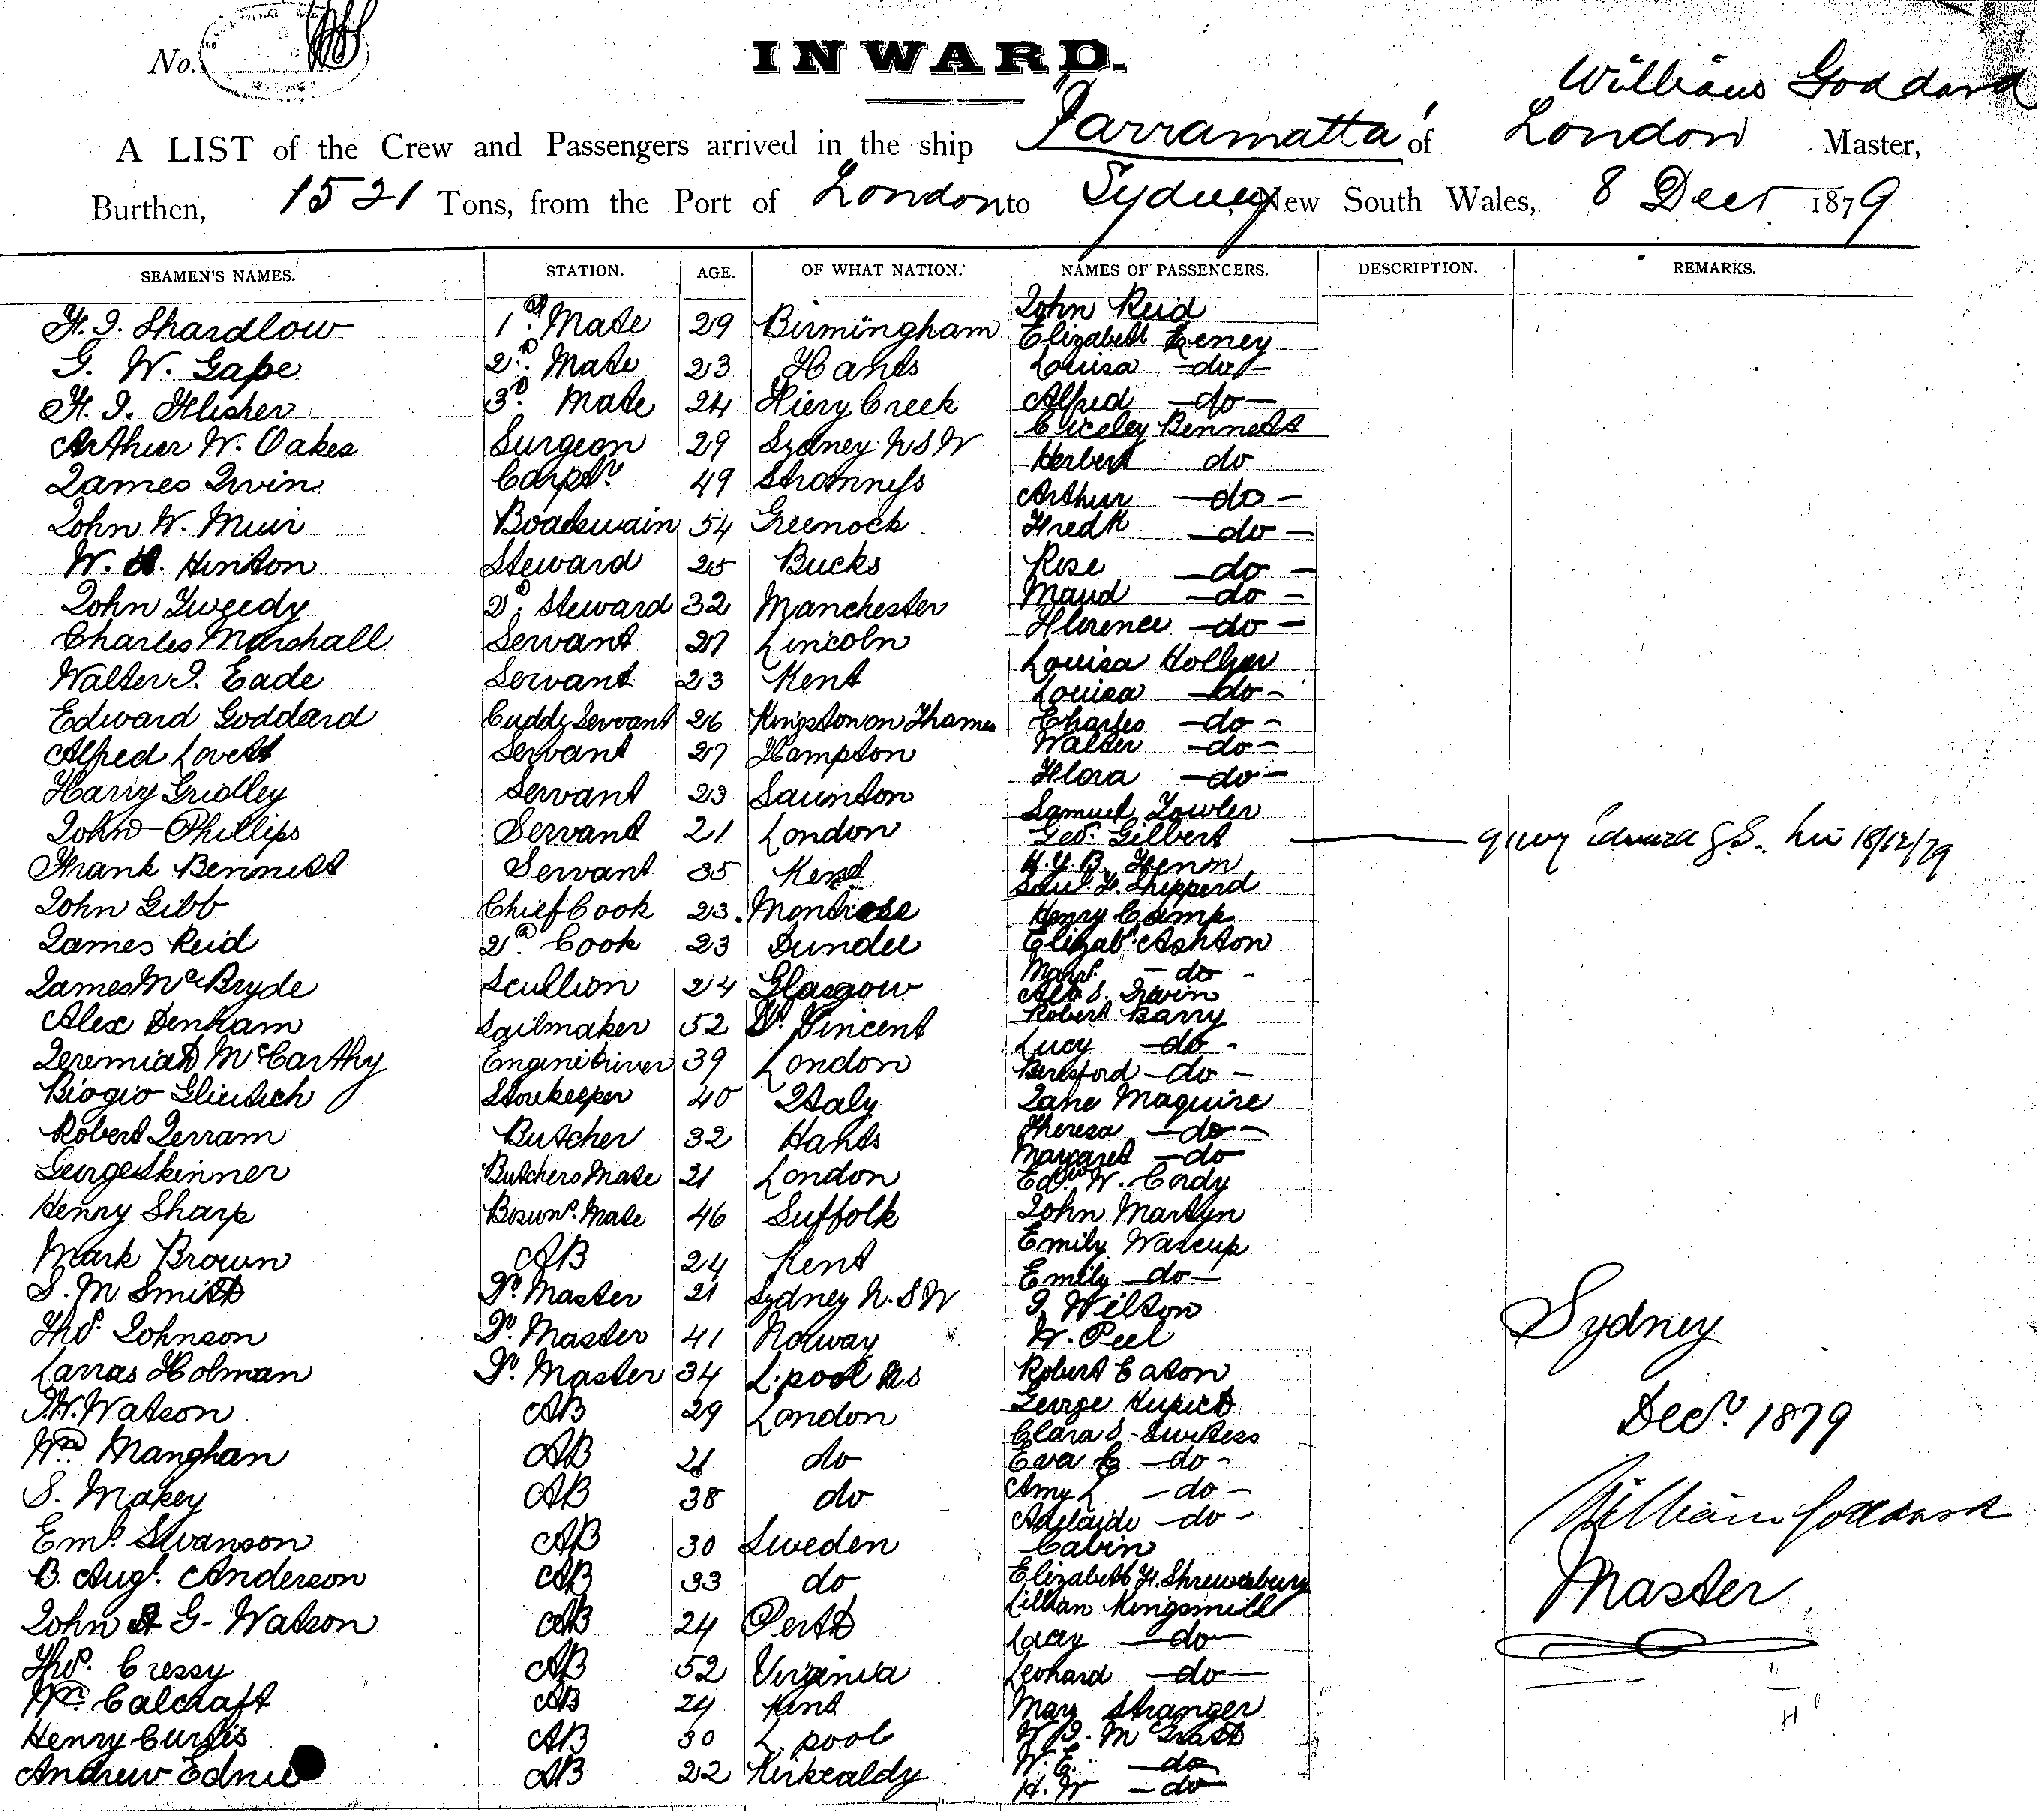 No.
INWARD.
William Goddard
A LIST of the Crew and Passengers arrived in the ship "Parramatta" of London Master,
Burthen, 1521 Tons, from the Port of London to Sydney New South Wales, 8 Decr 1879
SEAMEN'S NAMES. STATION. AGE. OF WHAT NATION. NAMES OF PASSENGERS. DESCRIPTION. REMARKS.
John Reid
H. J. Shardlow 1st Mate 29 Birmingham Elizabeth Eeney
G. W. Gape 2d Mate 23 Hants Louisa -do-
H. J. Flisher 3d Mate 24 Fiery Creek Alfred -do-
Arthur W. Oakes Surgeon 29 Sydney NSW Ciceley Bennett
Herbert do
James Irvin Carptr 49 Stromness Arthur -do-
John W. Muir Boatswain 54 Greenock Fredk -do-
W. H. Hinton Steward 25 Bucks Rose -do-
John Tweedy 2d Steward 32 Manchester Maud -do-
Charles Marshall Servant 27 Lincoln Florence -do-
Louisa Hollyer
Walter J. Eade Servant 23 Kent Louisa -do-
Edward Goddard Cuddy Servant 26 Kingston on Thames Charles -do-
Alfred Lovett Servant 27 Hampton Walter -do-
Flora -do-
Harry Gridley Servant 23 Saunton Samuel Fowler
John Phillips Servant 21 London Geo. Gilbert 18/12/79
Frank Bennett Servant 35 Kent H. Y. B. Henon
Saul F. Shipperd
John Gibb Chief Cook 23 Montrose Henry Camp
James Reid 2d Cook 23 Dundee Elizabt Ashton
Margt - do -
James McBryde Scullion 24 Glasgow Alb S. Irwin
Alex Denham Sailmaker 52 St. Vincent Robert Barry
Lucy -do-
Jeremiah McCarthy Enginedriver 39 London Beresford -do-
Biogio Gliubich Storekeeper 40 Italy Jane Maguire
Robert Jerram Butcher 32 Hants Theresa -do-
Margaret -do
George Skinner Butchers Mate 21 London Edwd W. Cordy
Henry Sharp Boswns Mate 46 Suffolk John Martyn
Emily Warcup
Mark Brown AB 24 Kent Emily -do-
S. M Smith Qr. Master 21 Sydney N.S.W J. Wilton
Thos. Johnson Qr. Master 41 Norway W. Peel
Larras Holman Qr. Master 34 L.pool Robert Eaton
J. W. Watson AB 29 London George
Clara S.
Wm Manghan AB 21 do Eva E -do-
S. Makey AB 38 do Amy L -do-
Adelaide -do-
Eml. Swanson AB 30 Sweden Cabin
B. Augt. Anderson AB 33 do Elizabeth H. Shrewsbury
Lillian Kingsmill
John G- Watson AB 24 Perth Lucy -do-
Thos. Cressy AB 52 Virginia Leonard -do-
Wm Calcraft AB 24 Kent Mary Stranger
Henry Curtis AB 30 L.pool W.
W. E. -do
Andrew Ednie AB 22 Kirkcaldy H. W -do-
Sydney
Decr 1879
William Goddard
Master